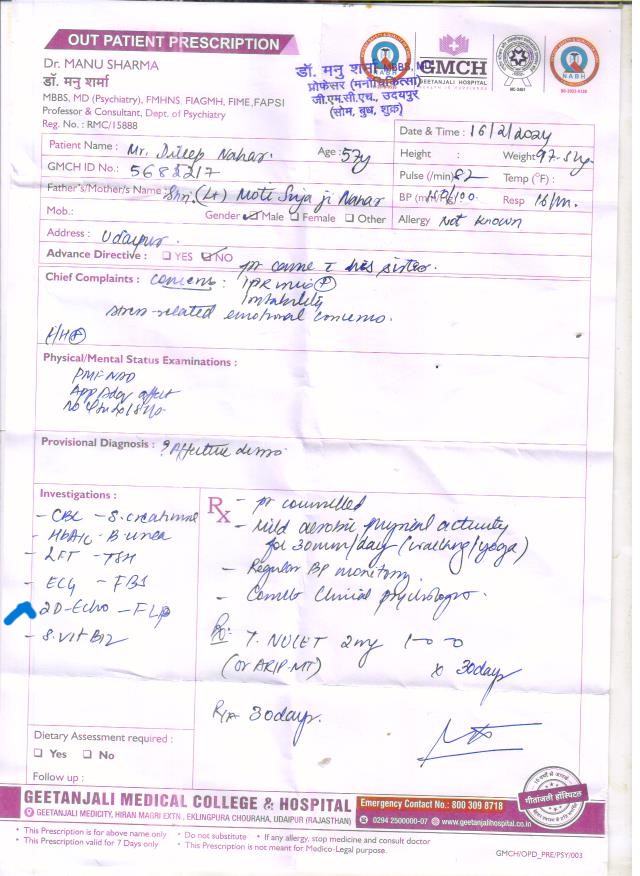 OUT PATIENT PRESCRIPTION
Dr. MANU SHARMA
डॉ. मनु शर्मा
MBBS, MD (Psychiatry), FMHNS, FIAGMH, FIME, FAPSI
Professor & Consultant, Dept. of Psychiatry
Reg. No. : RMC/15888
डॉ. मनु शर्मा MBBS, MD
प्रोफेसर (मनोचिकित्सा)
जी.एम.सी.एच., उदयपुर
(सोम, बुध, शुक्र)
NABH
GMCH
GEETANJALI HOSPITAL
NABH
Date & Time : 16/2/2024
Patient Name : Mr. Dileep Nahar. Age : 57y
Height : Weight 97.5kg.
GMCH ID No.: 5682217
Pulse (/min) 82 Temp (°F) :
Father's/Mother's Name : Shri (Lt) Moti Nahar
BP /100. Resp 16/m.
Mob.: Gender Male Female Other
Allergy Not known
Address : Udaipur.
Advance Directive : YES NO
pt came c his sister.
Chief Complaints : concerns :
Irritability
stress-related emotional concerns.
Physical/Mental Status Examinations :
affect
Provisional Diagnosis : ? Affective
Investigations :
- CBC - S. creatinine
- HbA1C - B. urea
- LFT - TSH
- ECG - FBS
2D-Echo - FLP
- S. Vit B12
Rx - pt counselled
- Mild aerobic physical activity
for 30min/day (walking/yoga)
- Regular BP monitoring.
- Clinical psychologist.
Rx: T. NULET 2mg 1-0-0
(or ARIP-MT) x 30days
30days.
Dietary Assessment required :
Yes No
Follow up :
GEETANJALI MEDICAL COLLEGE & HOSPITAL
GEETANJALI MEDICITY, HIRAN MAGRI EXTN , EKLINGPURA CHOURAHA, UDAIPUR (RAJASTHAN)
Emergency Contact No.: 800 309 8718
0294 2500000-07 www.geetanjalihospital.co.in
गीतांजली हॉस्पिटल
• This Prescription is for above name only • Do not substitute • If any allergy, stop medicine and consult doctor
• This Prescription valid for 7 Days only • This Prescription is not meant for Medico-Legal purpose.
GMCH/OPD_PRE/PSY/003